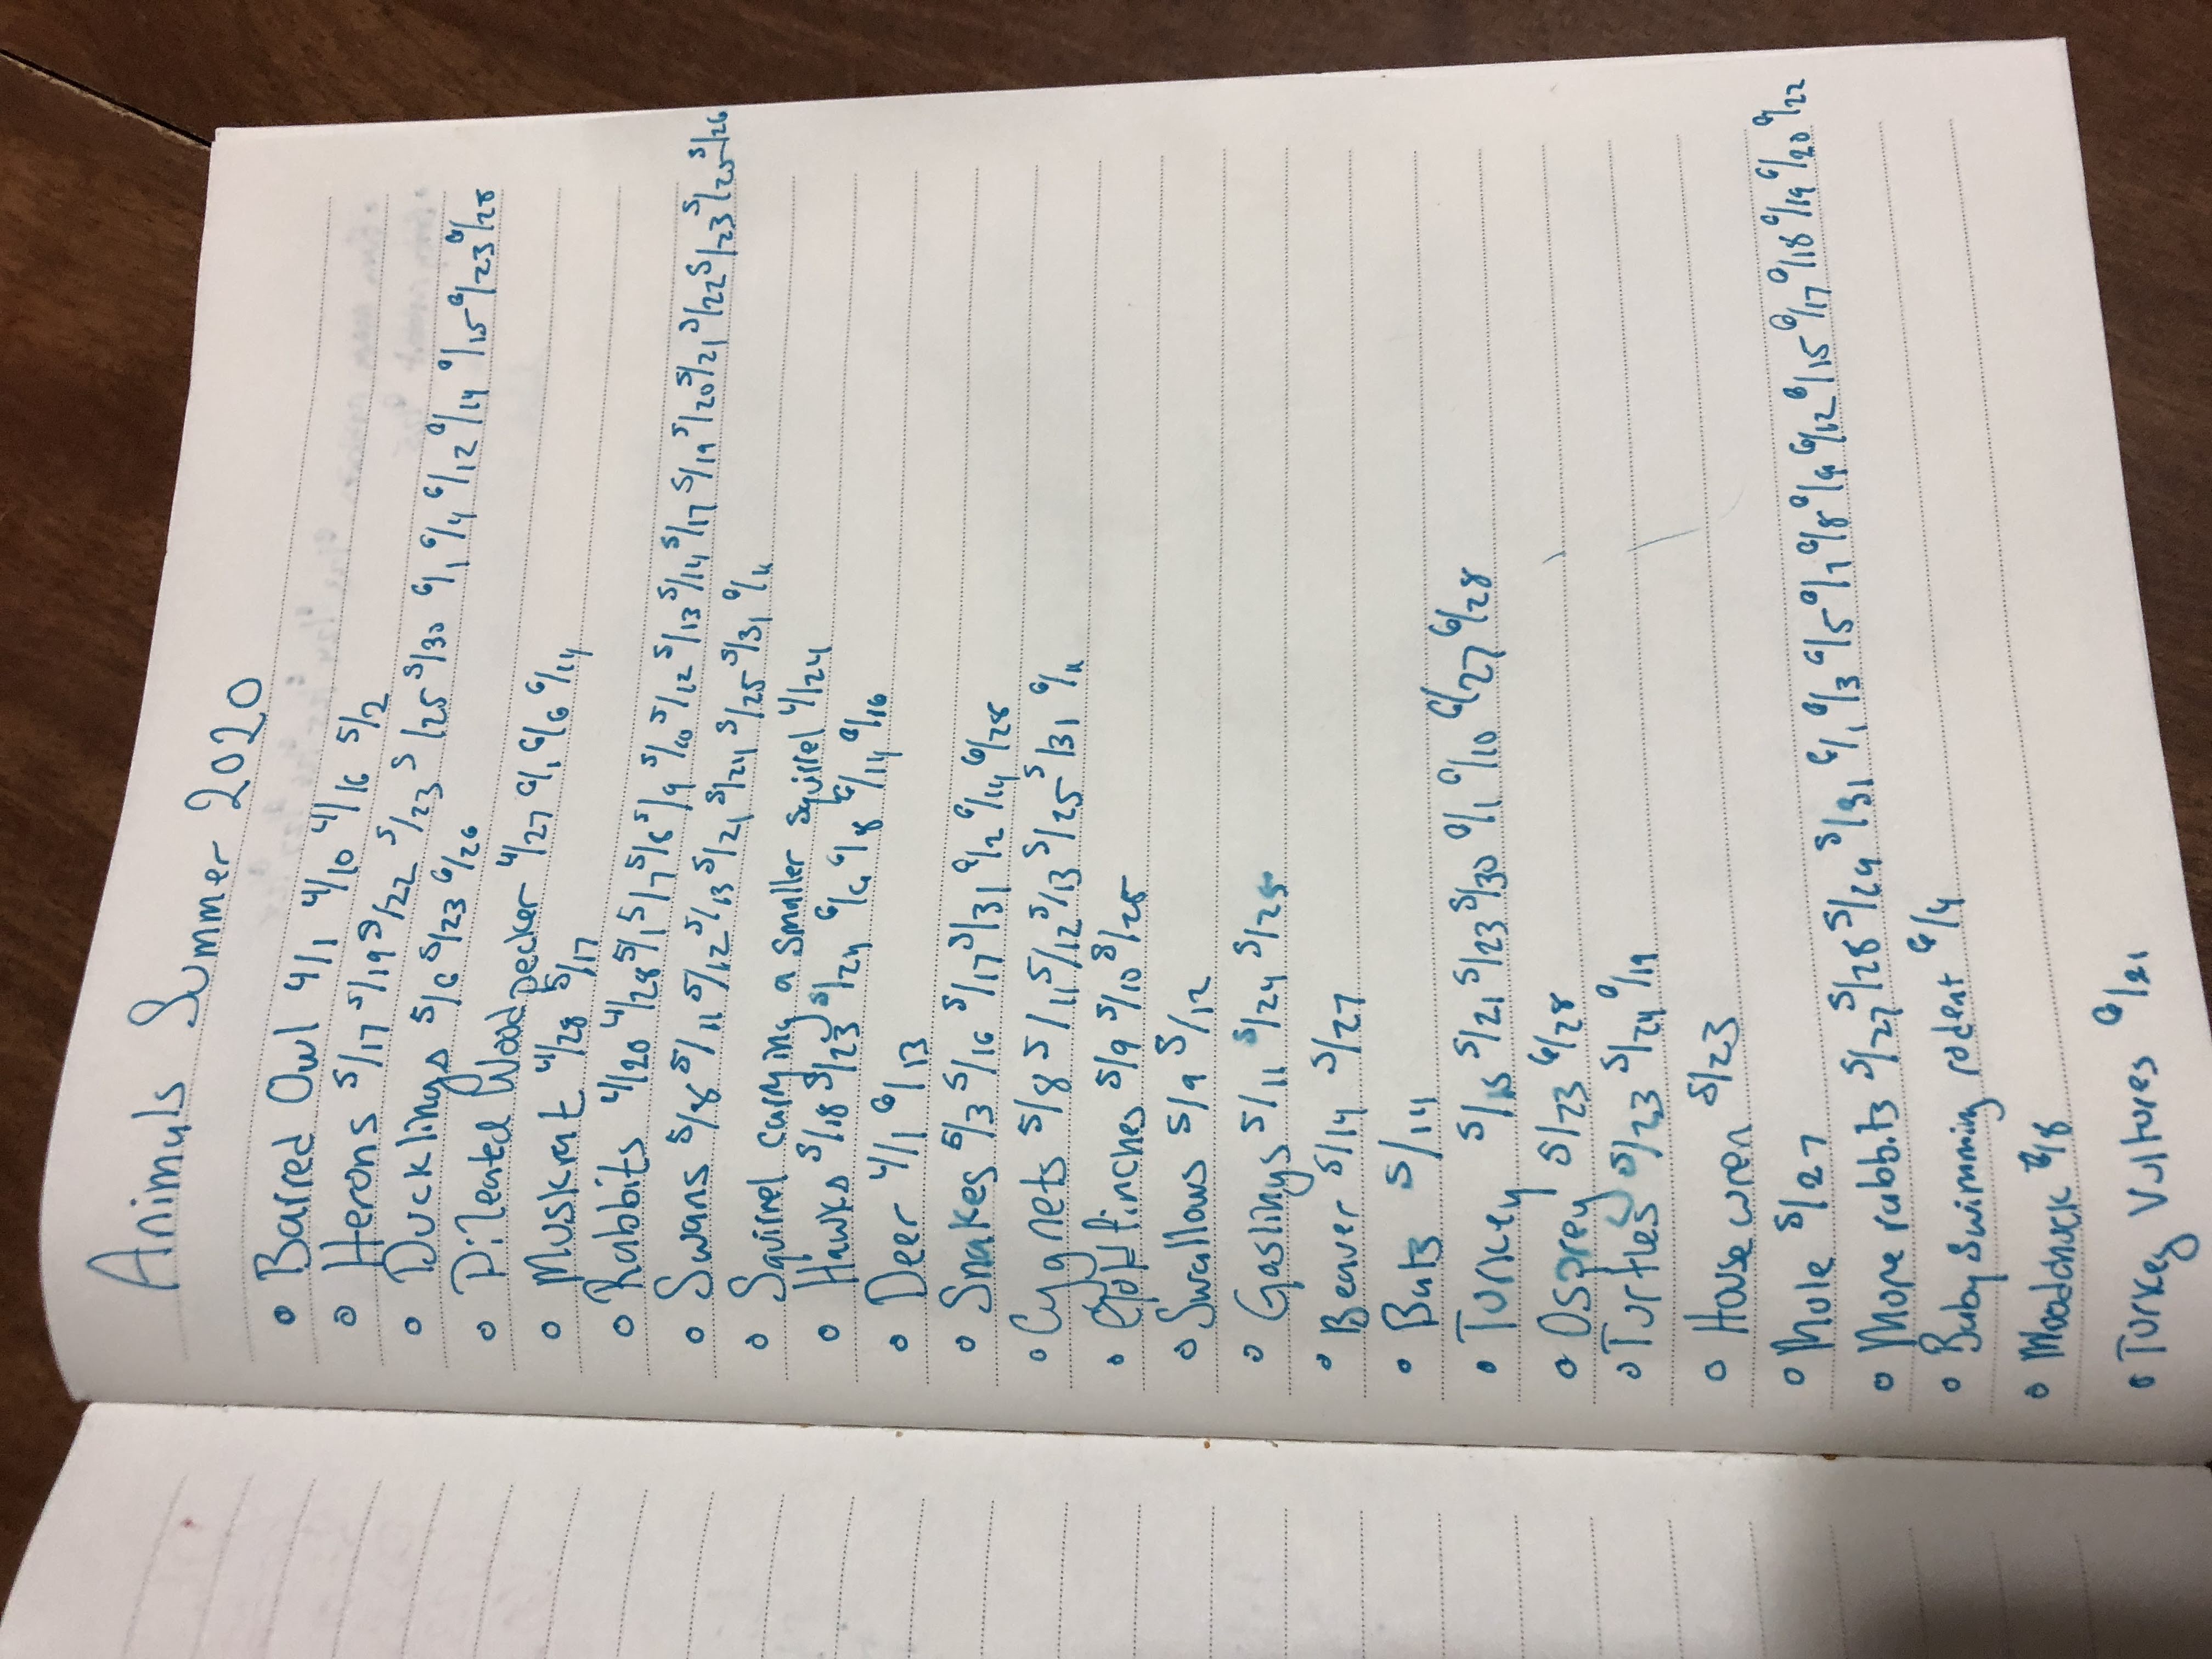 Animals Summer 2020
Barred Owl 4/1 4/10 4/16 5/2
Herons 5/17 5/19 5/22 5/23 5/25 5/30 6/1 6/4 6/12 6/14 6/15 6/23 6/28
Ducklings 5/6 5/23 6/26
Pileated Woodpecker 4/27 6/1 6/6 6/14
Muskrat 4/28 5/17
Rabbits 4/20 4/28 5/1 5/7 5/8 5/9 5/10 5/12 5/13 5/14 5/17 5/19 5/20 5/21 5/22 5/23 5/25 5/26
Swans 5/8 5/11 5/12 5/13 5/21 5/24 5/25 5/31 6/11
Squirrel carrying a smaller squirrel 4/24
Hawks 5/18 5/23 5/24 6/6 6/8 6/14 6/16
Deer 4/1 6/13
Snakes 5/3 5/16 5/17 5/31 6/2 6/14 6/28
Cygnets 5/8 5/11 5/12 5/13 5/25 5/31 6/11
Goldfinches 5/9 5/10 5/25
Swallows 5/9 5/12
Goslings 5/11 5/24 5/25
Beaver 5/14 5/27
Bats 5/14
Turkey 5/15 5/21 5/23 5/30 6/1 6/10 6/27 6/28
Osprey 5/23 6/28
Turtles 5/23 5/24 6/19
House wren 5/23
Mole 5/27
More rabbits 5/27 5/28 5/29 5/31 6/1 6/3 6/5 6/7 6/8 6/9 6/12 6/15 6/17 6/18 6/19 6/20 6/22
Baby swimming rodent 6/4
Woodchuck 6/8
Turkey Vultures 6/21